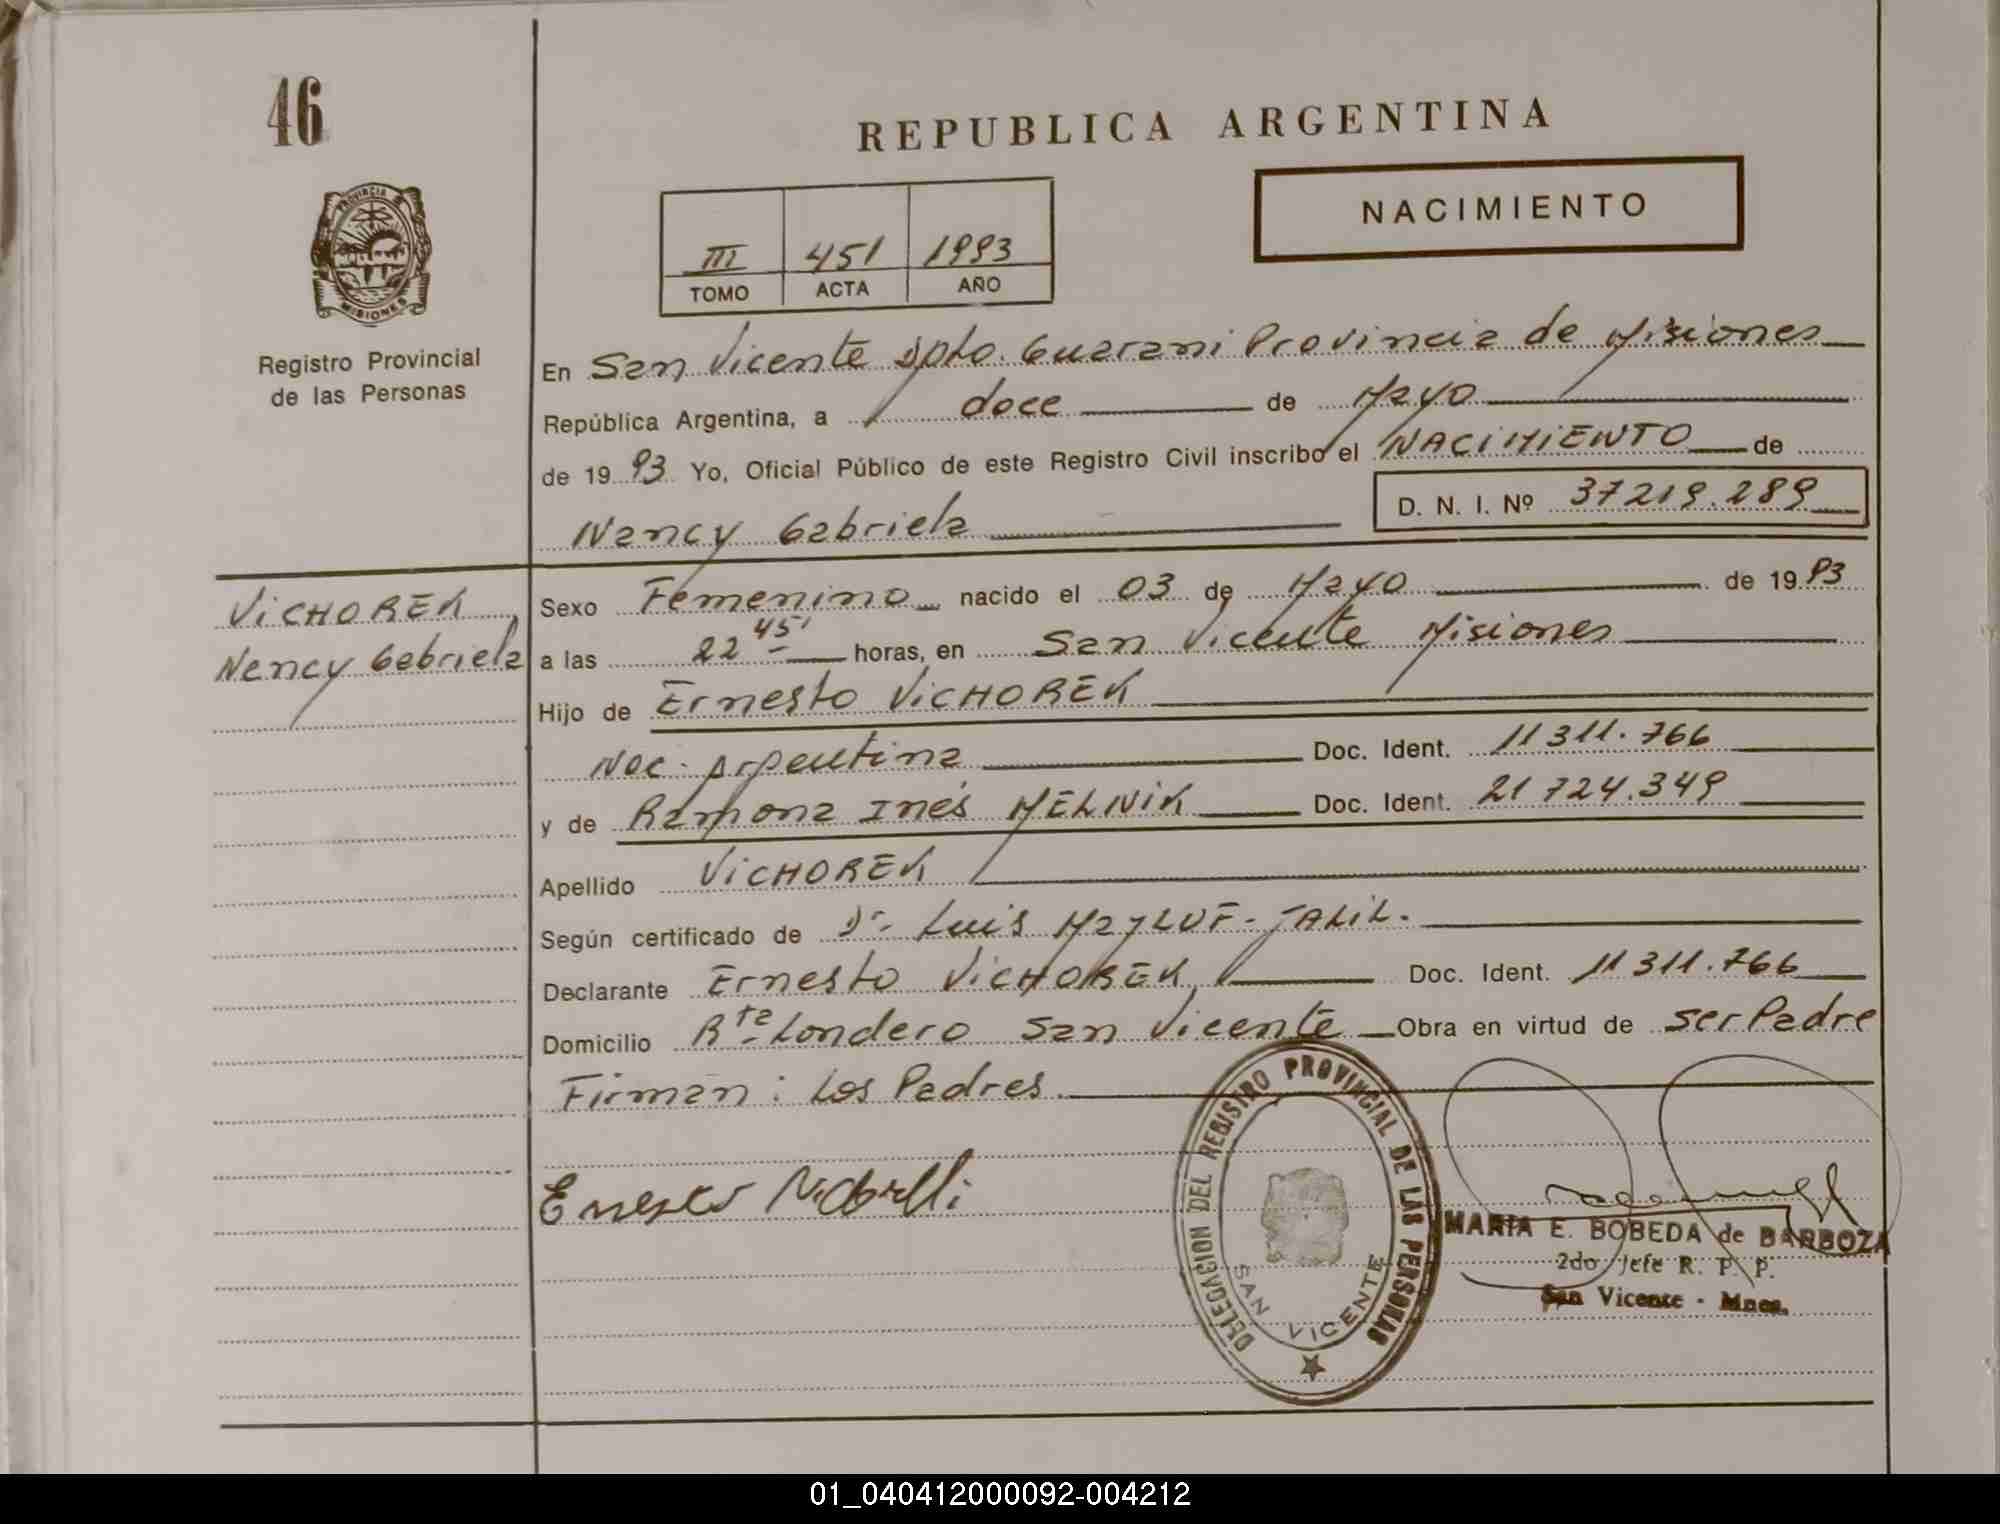 46
REPUBLICA ARGENTINA
PROVINCIA
MISIONES
NACIMIENTO
III 451 1993
TOMO ACTA AÑO
Registro Provincial
de las Personas
En San Vicente Dpto. Guarani Provincia de Misiones
República Argentina, a doce de Mayo
de 1993 Yo, Oficial Público de este Registro Civil inscribo el NACIMIENTO de
Nancy Gabriela D. N. I. Nº 37219.289
VICHOREK
Nancy Gabriela
Sexo Femenino nacido el 03 de Mayo de 1993
a las 22 45' horas, en San Vicente Misiones
Hijo de Ernesto VICHOREK
Nac. Argentina Doc. Ident. 11 311.766
y de Ramona Inés MELNIK Doc. Ident. 21 724.349
Apellido VICHOREK
Según certificado de Dr. Luis JALIL.
Declarante Ernesto VICHOREK Doc. Ident. 11 311.766
Domicilio Rta Londero San Vicente Obra en virtud de ser Padre
Firman: Los Padres.
Ernesto
DELEGACION DEL REGISTRO PROVINCIAL DE LAS PERSONAS
SAN VICENTE
MARIA E. BOBEDA de BARBOZA
2do Jefe R. P. P.
San Vicente - Mnes.
01_040412000092-004212